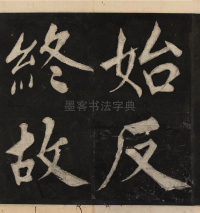 始反
終故
墨客书法字典